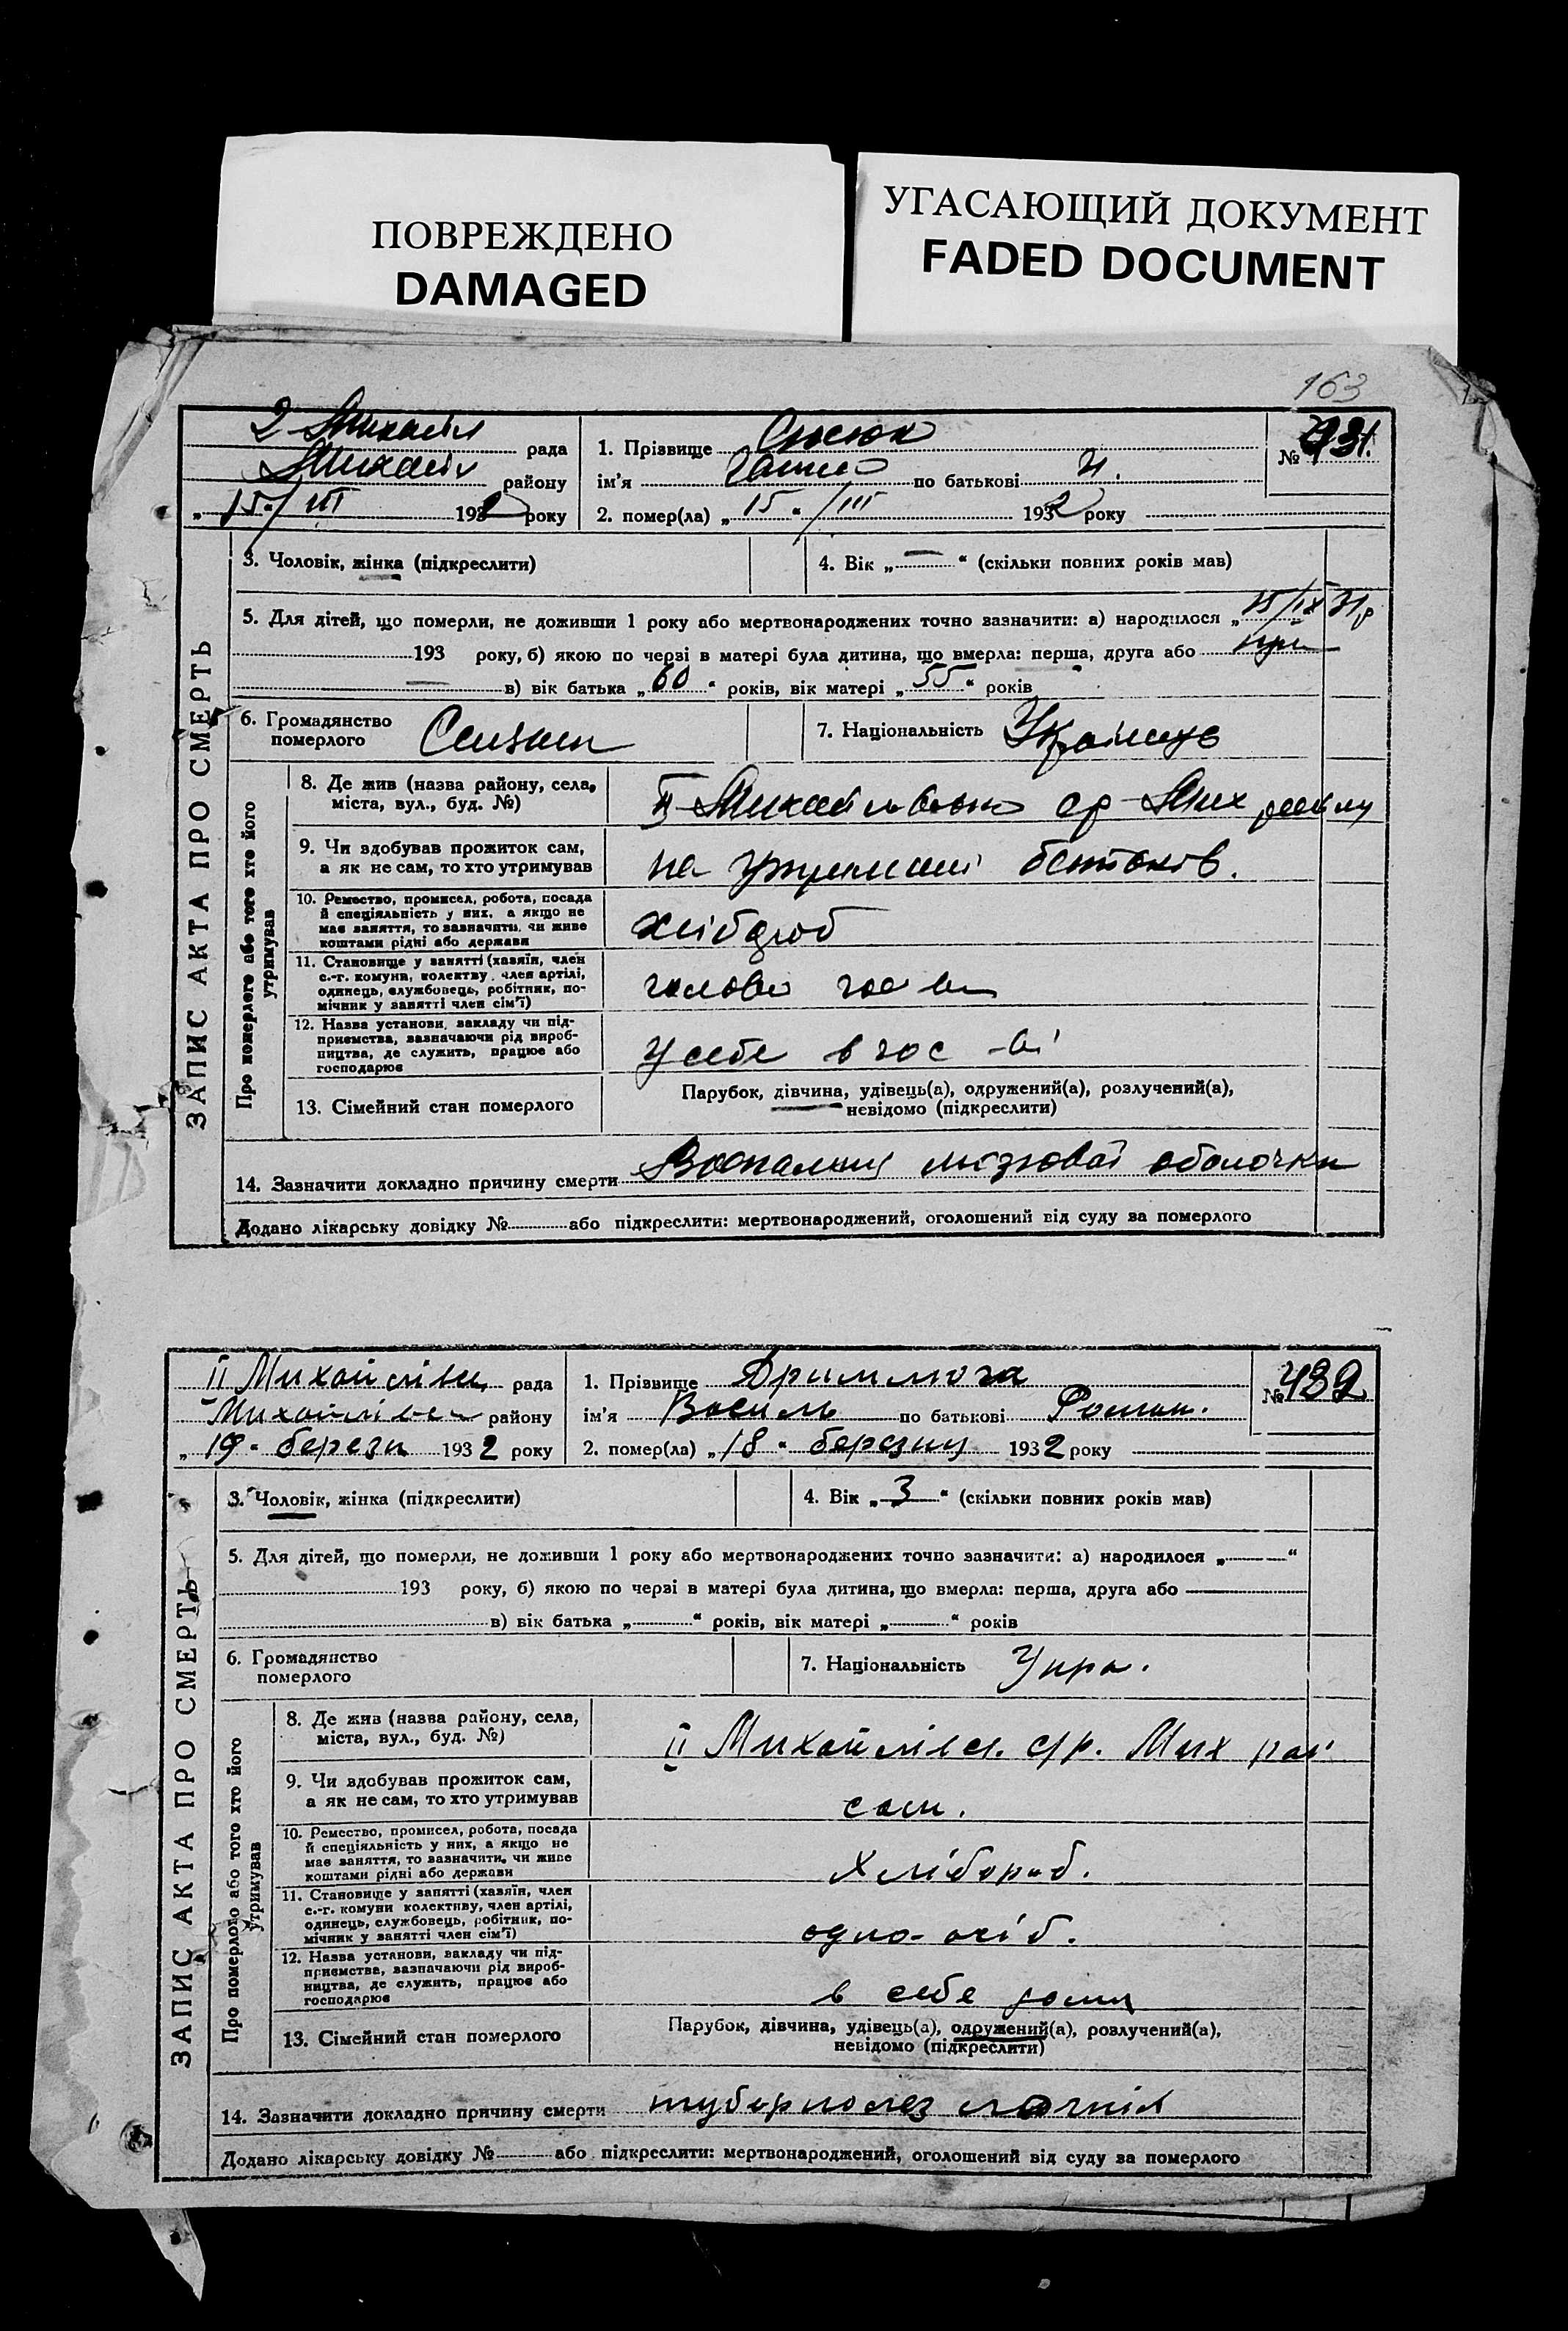 ПОВРЕЖДЕНО
DAMAGED
УГАСАЮЩИЙ ДОКУМЕНТ
FADED DOCUMENT
163
ЗАПИС АКТА ПРО СМЕРТЬ
2 Михайл рада
району
„15“/III 1932 року
1. Прізвище
ім'я по батькові
2. помер(ла) „15“/III 1932 року
№ 431.
3. Чоловік, жінка (підкреслити)
4. Вік „—“ (скільки повних років мав)
5. Для дітей, що померли, не доживши 1 року або мертвонароджених точно зазначити: а) народилося „15/IX 31 р
193 року, б) якою по черзі в матері була дитина, що вмерла: перша, друга або
в) вік батька „60“ років, вік матері „55“ років
6. Громадянство
померлого
7. Національність
Про померлого або того хто його
утримував
8. Де жив (назва району, села,
міста, вул., буд. №)
II Михайлівська ср Мих району
9. Чи здобував прожиток сам,
а як не сам, то хто утримував
на утриманні батьків.
10. Ремество, промисел, робота, посада
й спеціяльність у них, а якщо не
має заняття, то зазначити, чи живе
коштами рідні або держави
хлібороб
11. Становище у занятті (хазяїн, член
с.-г. комуни, колективу, член артілі,
одинець, службовець, робітник, по-
мічник у занятті член сім'ї)
голова
12. Назва установи, закладу чи під-
приємства, зазначаючи рід вироб-
ництва, де служить, працює або
господарює
у себе в гос-ві
13. Сімейний стан померлого
Парубок, дівчина, удівець(а), одружений(а), розлучений(а),
невідомо (підкреслити)
14. Зазначити докладно причину смерти Воспалення мозговой оболочки
Додано лікарську довідку № або підкреслити: мертвонароджений, оголошений від суду за померлого
ЗАПИС АКТА ПРО СМЕРТЬ
II Михайлівськ рада
району
„19“ березн 1932 року
1. Прізвище Дримлюга
ім'я Василь по батькові Роман.
2. помер(ла) „18“ березня 1932 року
№ 432
3. Чоловік, жінка (підкреслити)
4. Вік „3“ (скільки повних років мав)
5. Для дітей, що померли, не доживши 1 року або мертвонароджених точно зазначити: а) народилося „—“
193 року, б) якою по черзі в матері була дитина, що вмерла: перша, друга або
в) вік батька „ “ років, вік матері „ “ років
6. Громадянство
померлого
7. Національність Укра.
Про померлого або того хто його
утримував
8. Де жив (назва району, села,
міста, вул., буд. №)
II Михайлівсь. с/р. Мих рай
9. Чи здобував прожиток сам,
а як не сам, то хто утримував
сам.
10. Ремество, промисел, робота, посада
й спеціяльність у них, а якщо не
має заняття, то зазначити, чи живе
коштами рідні або держави
Хлібороб.
11. Становище у занятті (хазяїн, член
с.-г. комуни колективу, член артілі,
одинець, службовець, робітник, по-
мічник у занятті член сім'ї)
одно-осіб.
12. Назва установи, закладу чи під-
приємства, зазначаючи рід вироб-
ництва, де служить, працює або
господарює
в себе дома
13. Сімейний стан померлого
Парубок, дівчина, удівець(а), одружений(а), розлучений(а),
невідомо (підкреслити)
14. Зазначити докладно причину смерти туберкольоз
Додано лікарську довідку № або підкреслити: мертвонароджений, оголошений від суду за померлого